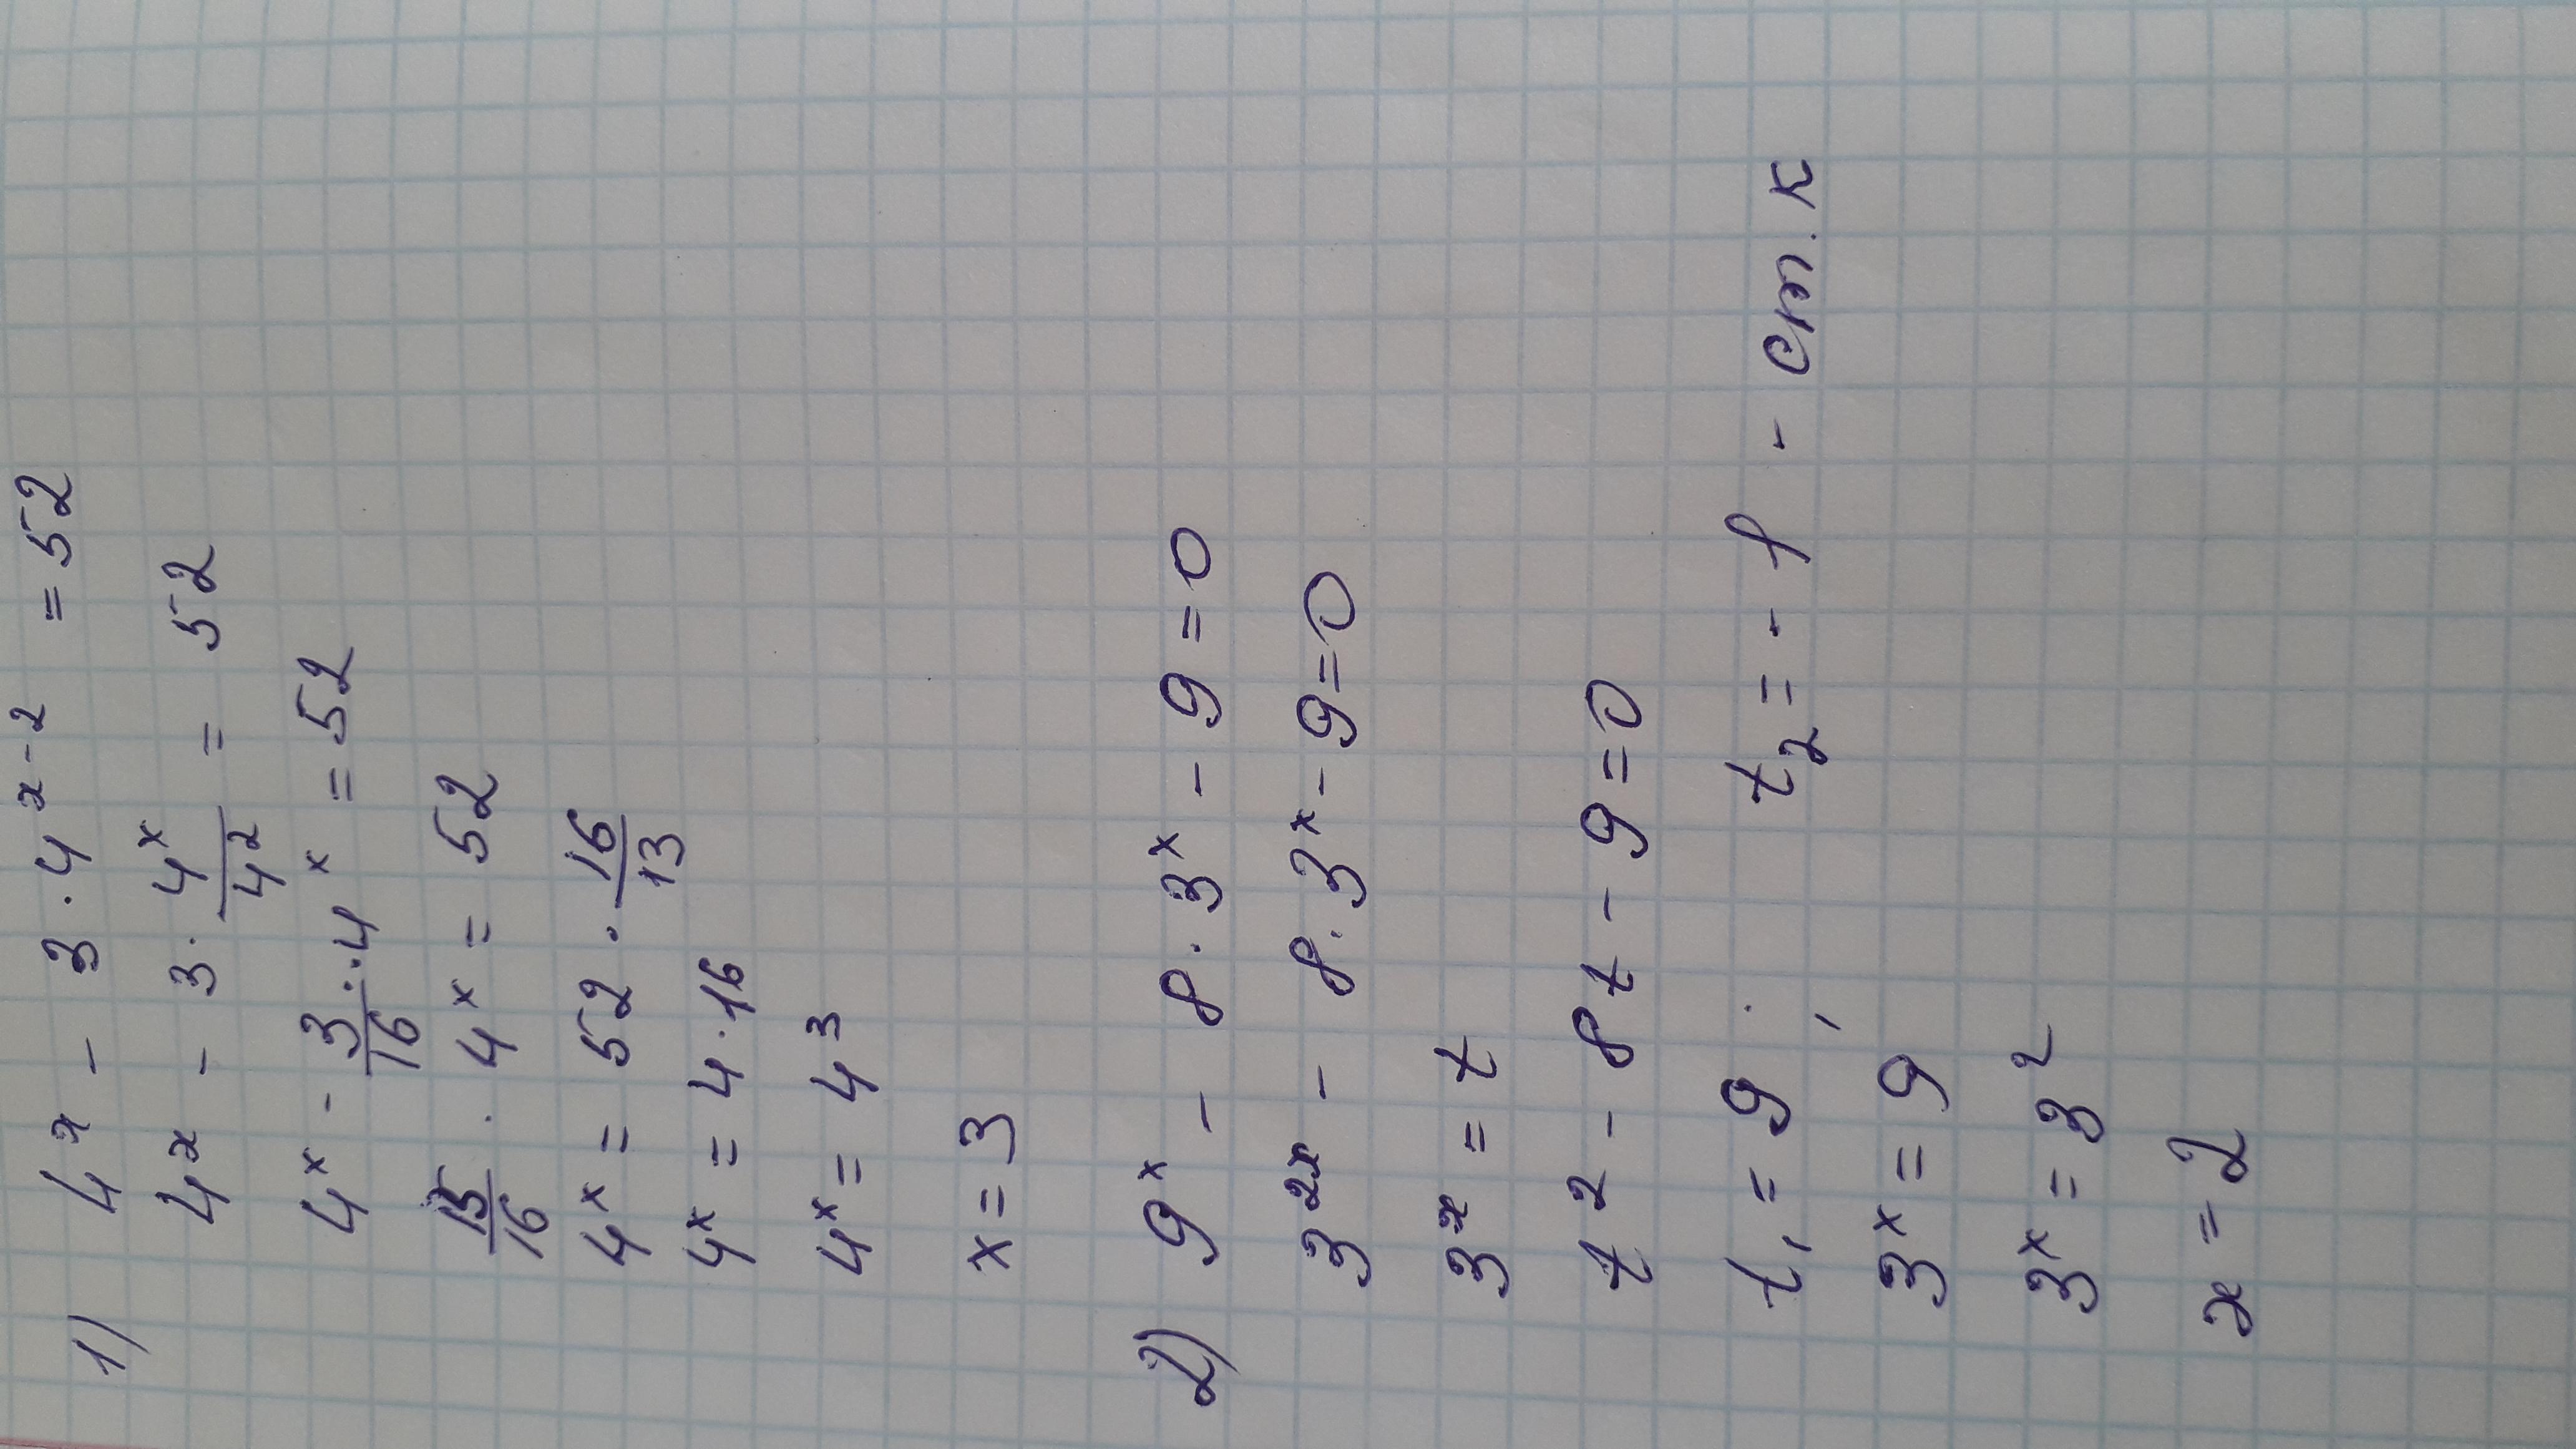 1) 4ˣ - 3 · 4ˣ⁻² = 52
4ˣ - 3 · 4ˣ/4² = 52
4ˣ - 3/16 · 4ˣ = 52
13/16 · 4ˣ = 52
4ˣ = 52 · 16/13
4ˣ = 4 · 16
4ˣ = 4³
x = 3
2) 9ˣ - 8 · 3ˣ - 9 = 0
3²ˣ - 8 · 3ˣ - 9 = 0
3ˣ = t
t² - 8t - 9 = 0
t₁ = 9, t₂ = -1 - ст. к
3ˣ = 9
3ˣ = 3²
x = 2